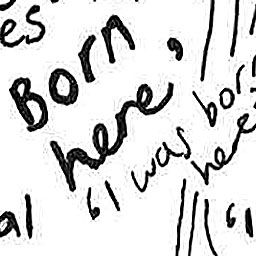 es
Born
here,
'I was born
here'
al
'I